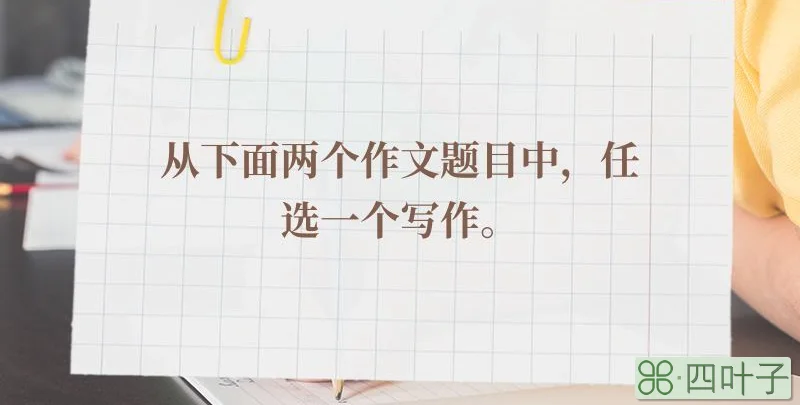 从下面两个作文题目中，任
选一个写作。
四叶子